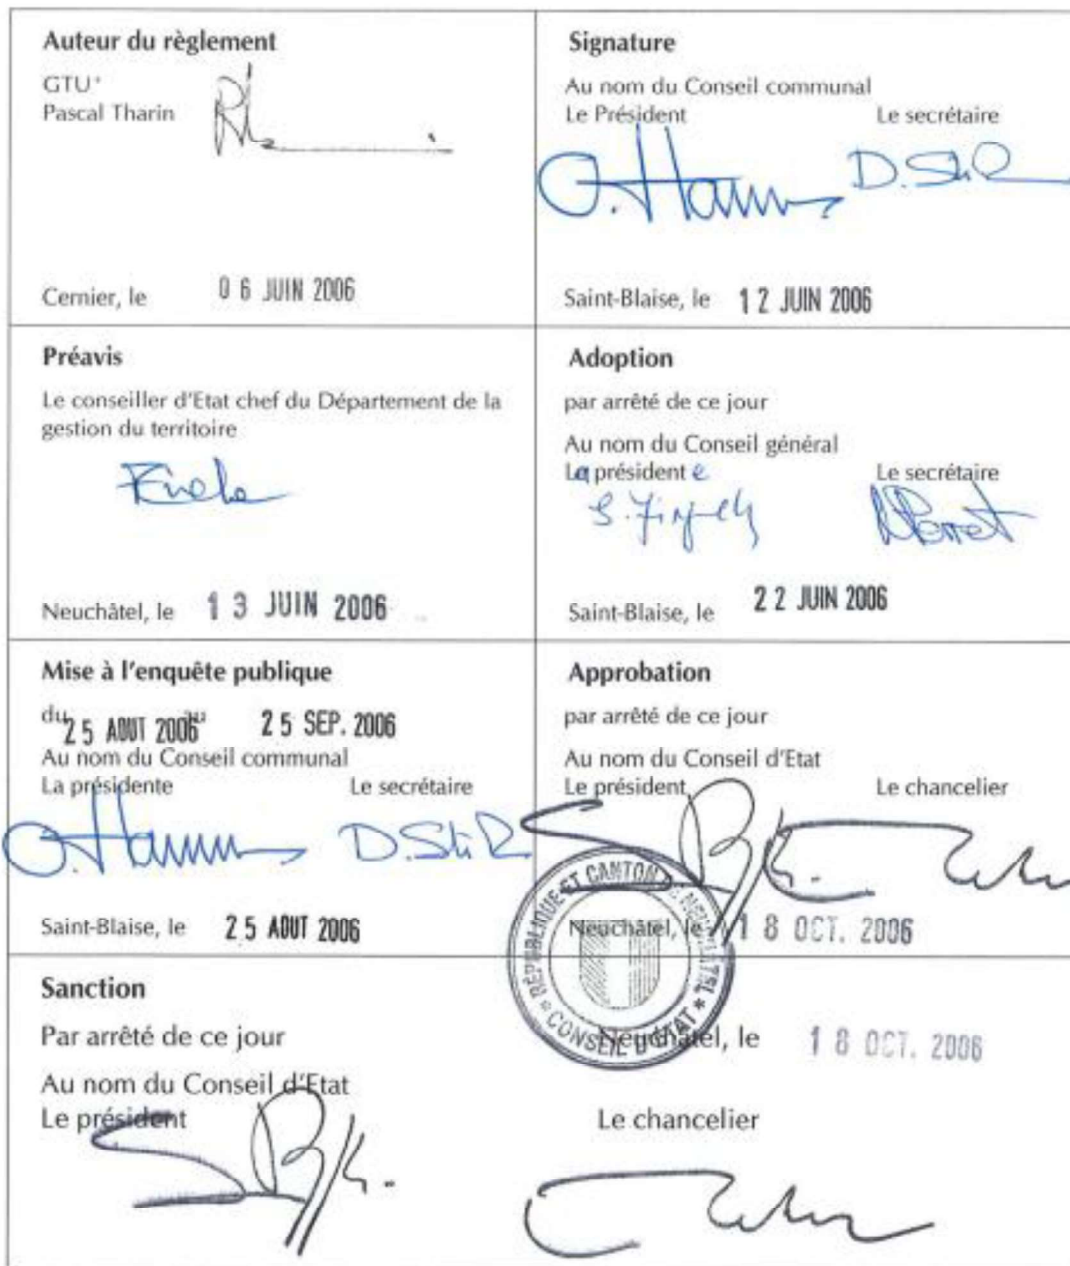 Auteur du règlement
GTU+
Pascal Tharin
Cernier, le 06 JUIN 2006
Signature
Au nom du Conseil communal
Le Président Le secrétaire
Saint-Blaise, le 12 JUIN 2006
Préavis
Le conseiller d'Etat chef du Département de la
gestion du territoire
Neuchâtel, le 13 JUIN 2006
Adoption
par arrêté de ce jour
Au nom du Conseil général
La présidente Le secrétaire
Saint-Blaise, le 22 JUIN 2006
Mise à l'enquête publique
du 25 AOUT 2006 au 25 SEP. 2006
Au nom du Conseil communal
La présidente Le secrétaire
Saint-Blaise, le 25 AOUT 2006
Approbation
par arrêté de ce jour
Au nom du Conseil d'Etat
Le président Le chancelier
Neuchâtel, le 18 OCT. 2006
RÉPUBLIQUE ET CANTON DE NEUCHÂTEL
* CONSEIL D'ÉTAT *
Sanction
Par arrêté de ce jour Neuchâtel, le 18 OCT. 2006
Au nom du Conseil d'Etat
Le président Le chancelier